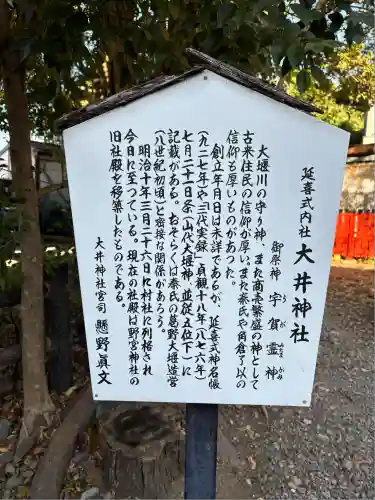 延喜式内社 大井神社
御祭神 宇賀霊神
うが みたま かみ
大堰川の守り神、また商売繁盛の神として
古来住民の信仰が厚い。また秦氏や角倉了以の
信仰も厚いものがあった。
創立年月日は未詳であるが、延喜式神名帳
(九二七年)や三代実録」貞観十八年(八七六年)
七月二十一日条「山代大堰神、並従五位下」に
記載がある。おそらくは秦氏の葛野大堰造営
(八世紀初頃)と密接な関係があろう。
明治十年三月二十六日に村社に列格され
今日に至っている。現在の社殿は野宮神社の
旧社殿を移築したものである。
大井神社宮司 懸野眞文